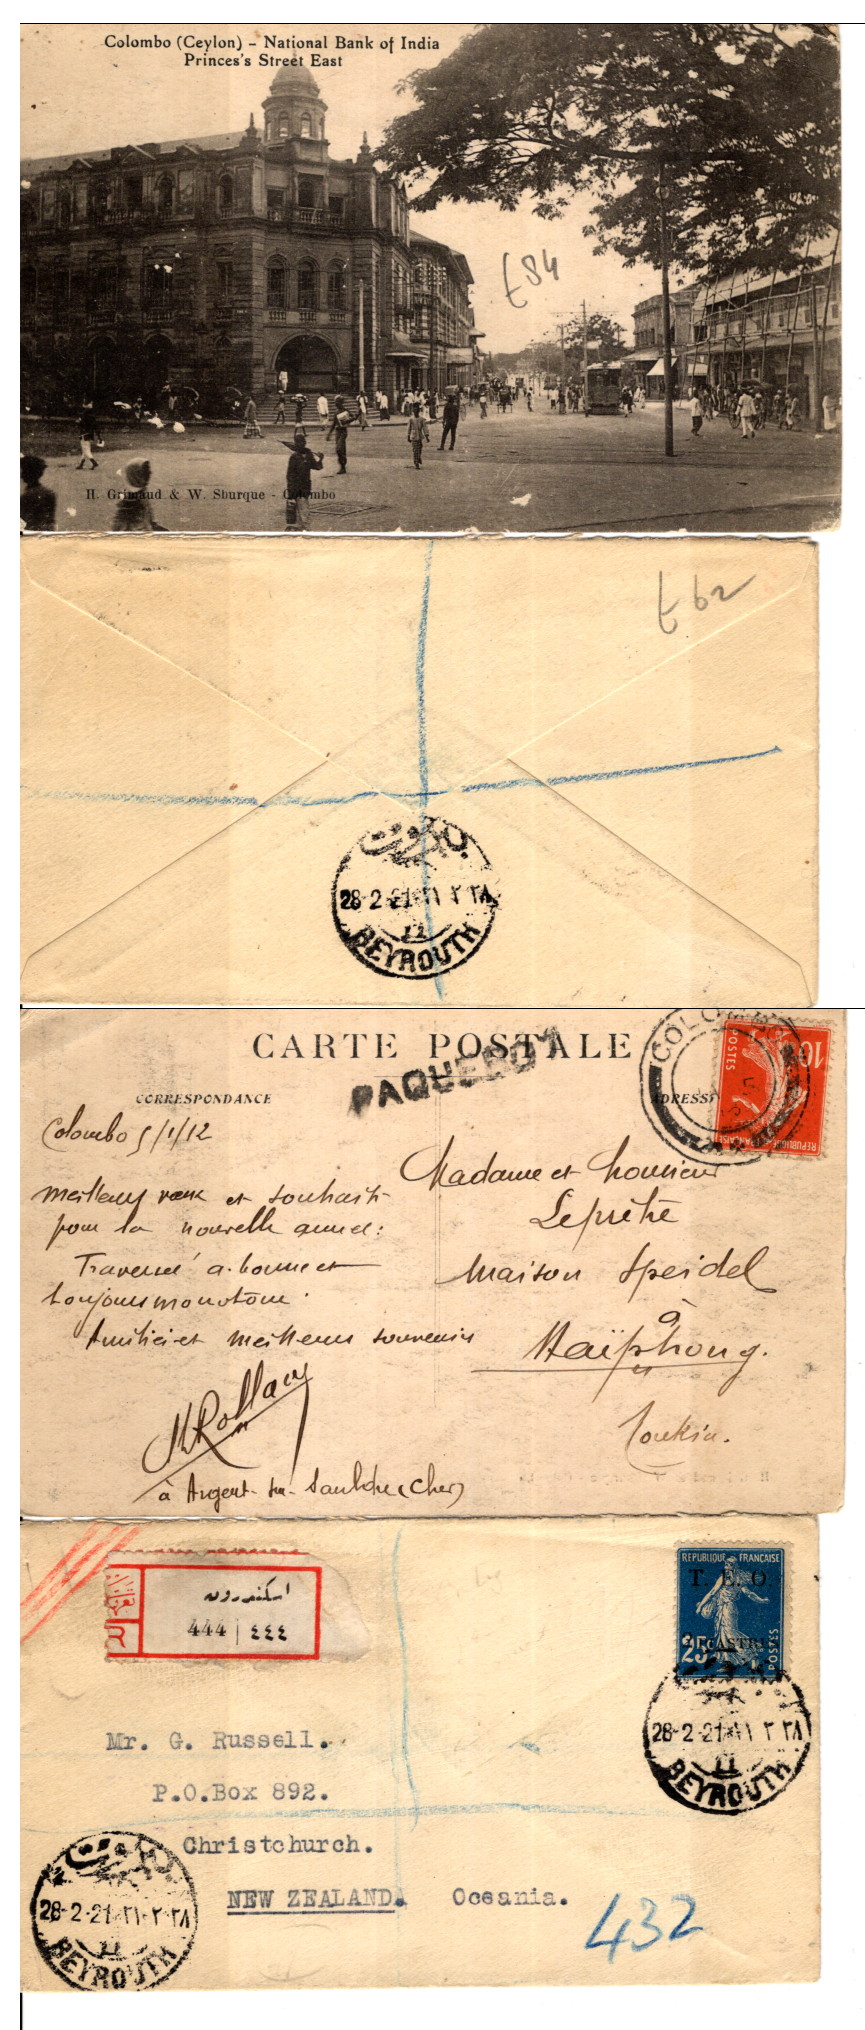 Colombo (Ceylon) - National Bank of India
Princes's Street East
£84
H. Grimaud & W. Sburque - Colombo
£62
بيروت
28-2-21 ٢١ ٢ ٢٨
BEYROUTH
CARTE POSTALE
PAQUEBOT
COLOMBO
10
POSTES
REPUBLIQUE FRANÇAISE
CORRESPONDANCE
ADRESSE
Colombo 5/1/12
Meilleurs vœux et souhaits
pour la nouvelle année:
Traversée a. bonne et
toujours monotone.
Amitiés et meilleurs souvenirs
MRollacy
à Argent-sur-Sauldre (Cher)
Madame et Monsieur
Leprêtre
Maison Speidel
à
Haïphong.
Tonkin.
اسكندرون
444 | ٤٤٤
REPUBLIQUE FRANÇAISE
T. E. O.
25c
PIASTRES
POSTES
28-2-21 ٢١ ٢ ٢٨
BEYROUTH
Mr. G. Russell.
P.O.Box 892.
Christchurch.
NEW ZEALAND. Oceania.
432
بيروت
28-2-21 ٢١-٢-٢٨
BEYROUTH